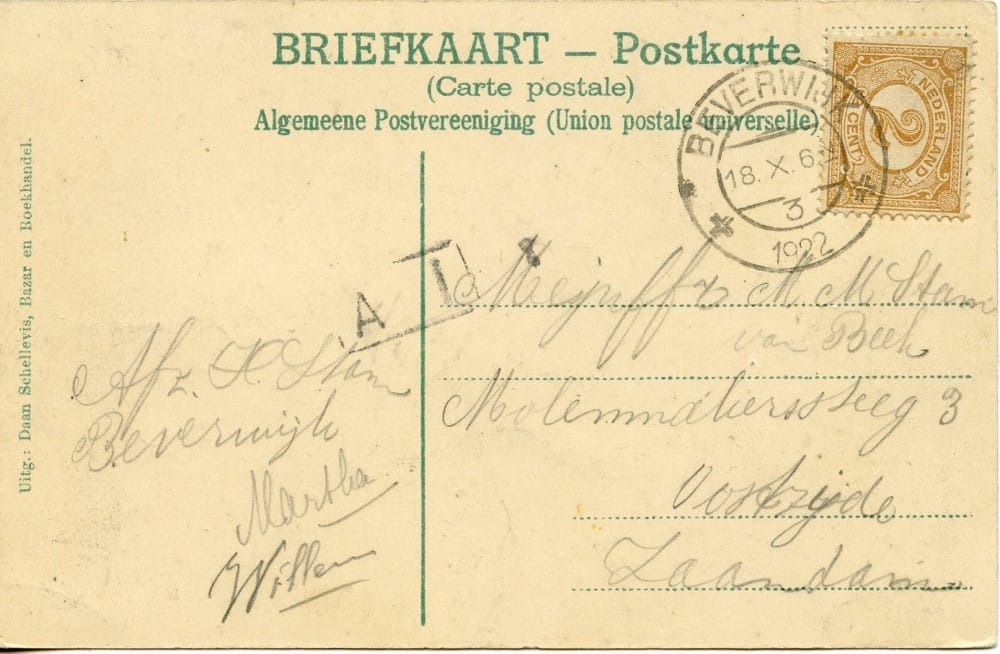 BRIEFKAART — Postkarte
(Carte postale)
Algemeene Postvereeniging (Union postale universelle)
NEDERLAND
2
CENT
BEVERWIJK
18. X. 6
3
1922
A
Mejuffr M M Stam
van Beek
Molenmakerssteeg 3
Oostzijde
Zaandam
Afz. K Stam
Beverwijk
Martha
Willem
Uitg.: Daan Schellevis, Bazar en Boekhandel.